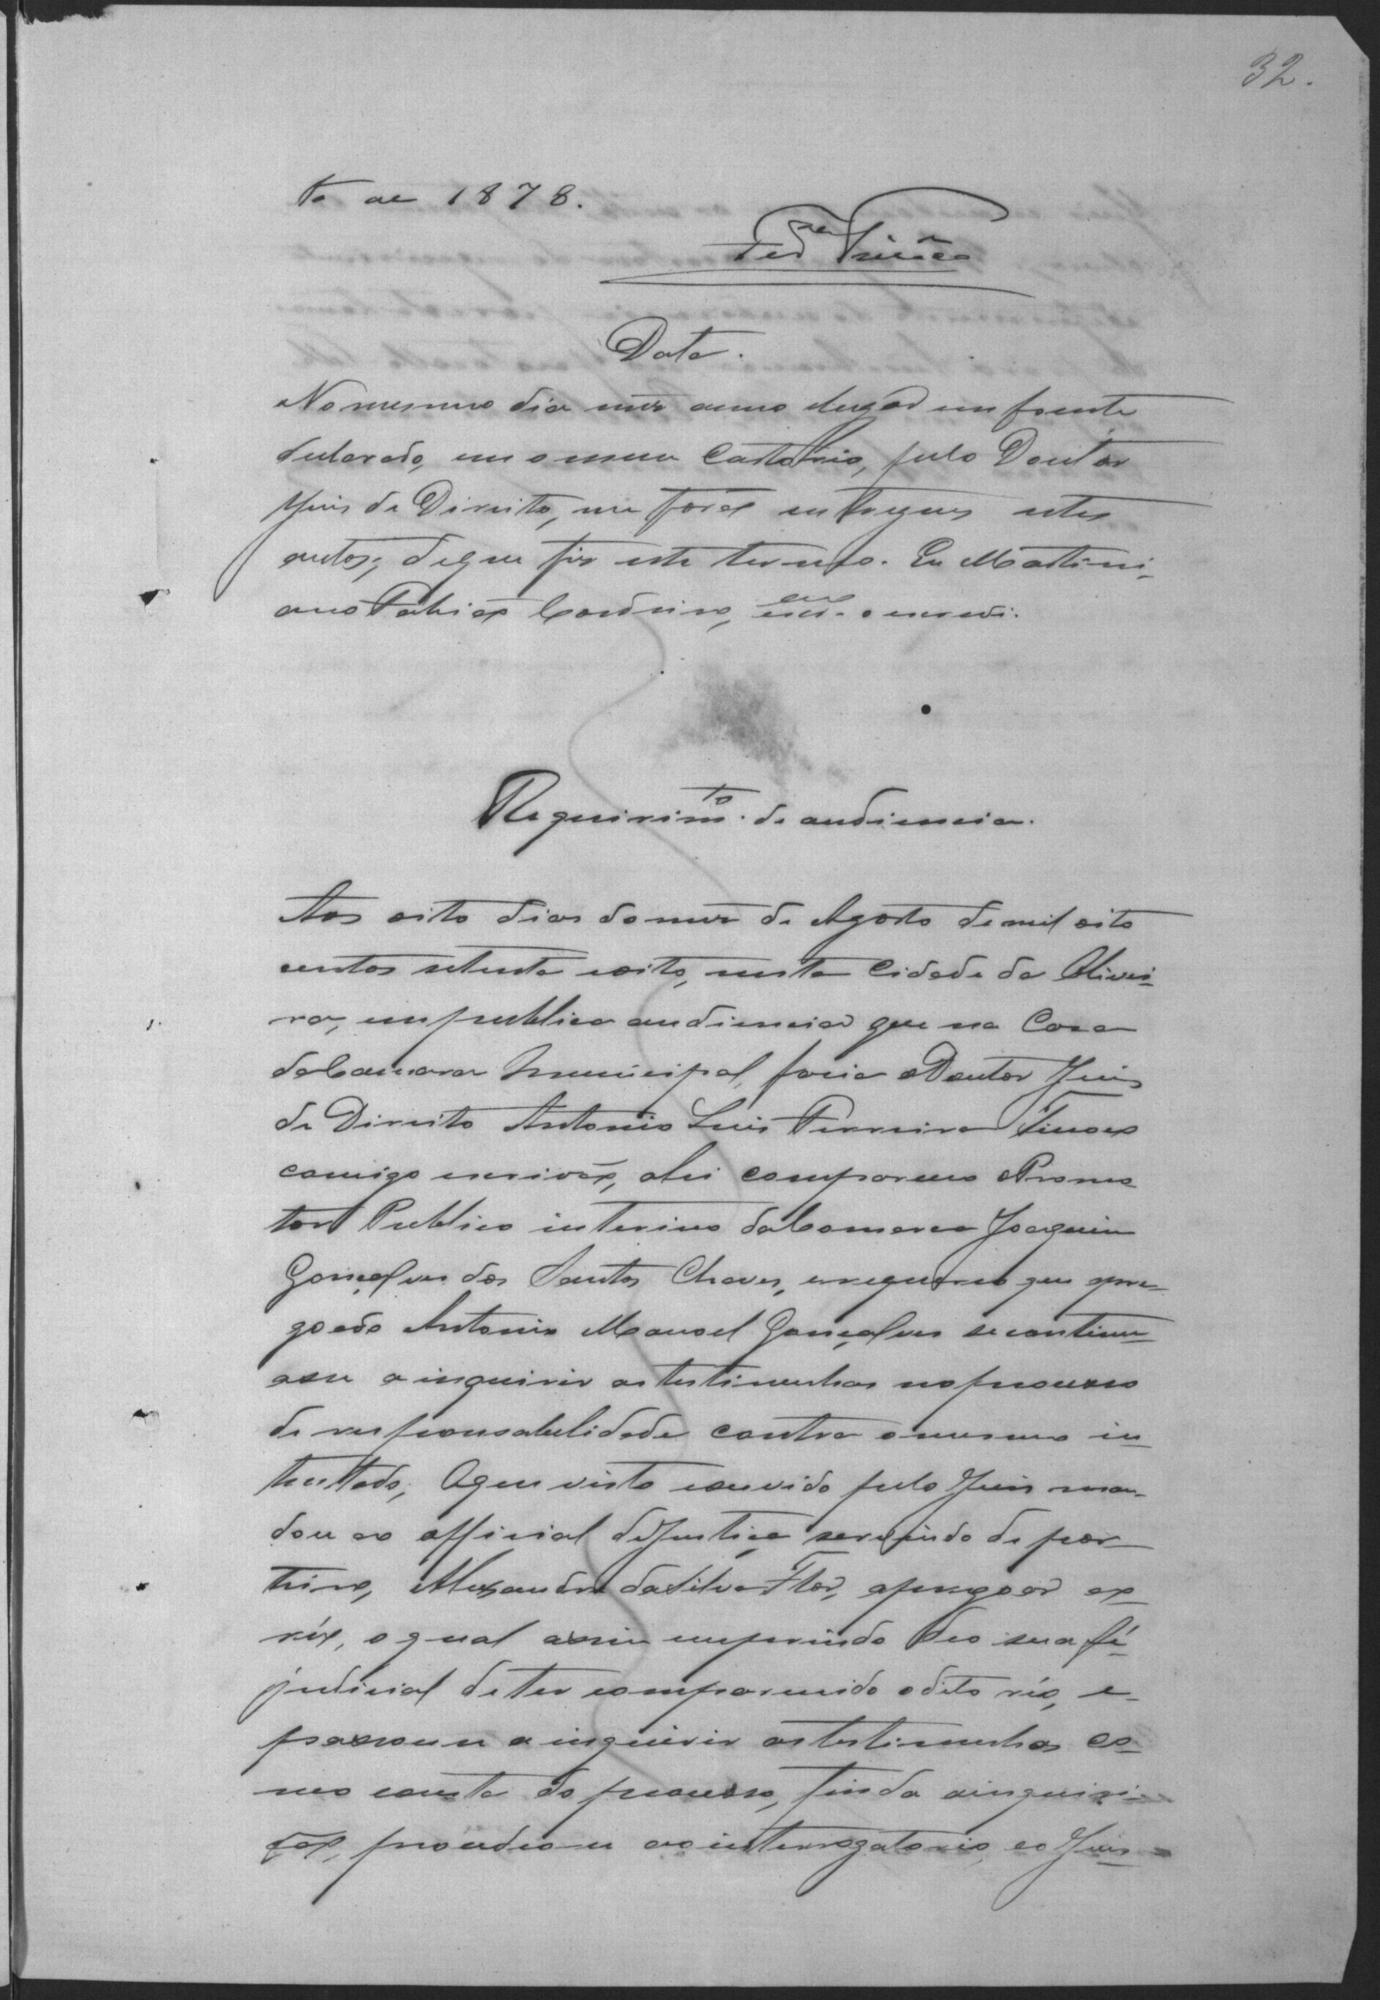 32.
to de 1878.
Ferra Tinôco
Data.
No mesmo dia mez anno e lugar em frente
declarado, em o meu Cartorio, pelo Doutor
Juis de Direito, me forão entregues estes
autos; de que fiz este termo. Eu Martini-
ano Cordeiro, escrivão o escrevi.
Requirimto. de audiencia.
Aos oito dias do mez de Agosto de mil oito
centos setenta e oito, nesta Cidade da Olivei-
ra, em publica audiencia que na Casa
da Camara Municipal, fasia o Doutor Juis
de Direito Antonio Luis Ferreira Tinoco
comigo escrivão, ahi compareceo o Promo
tor Publico interino da Comarca Joaquim
Gonçalves dos Santos Chaves, e requereo que apre-
goado Antonio Manoel Gonçalves se continu-
asse a inquirir as testimunhas no processo
de responsabelidade contra o mesmo in-
tentado; O que visto e ouvido pelo Juis man-
dou ao official de Justiça servindo de por
teiro, Alexandre da Silva Flôr, apregoar ao
réo, o qual assim cumprindo deo sua fé
judicial de ter comparecido o dito réo, e
passou-se a inquirir as testimunhas co-
mo consta do processo, finda a inquiri-
ção, procedeo-se ao interrogatorio, e o Juis